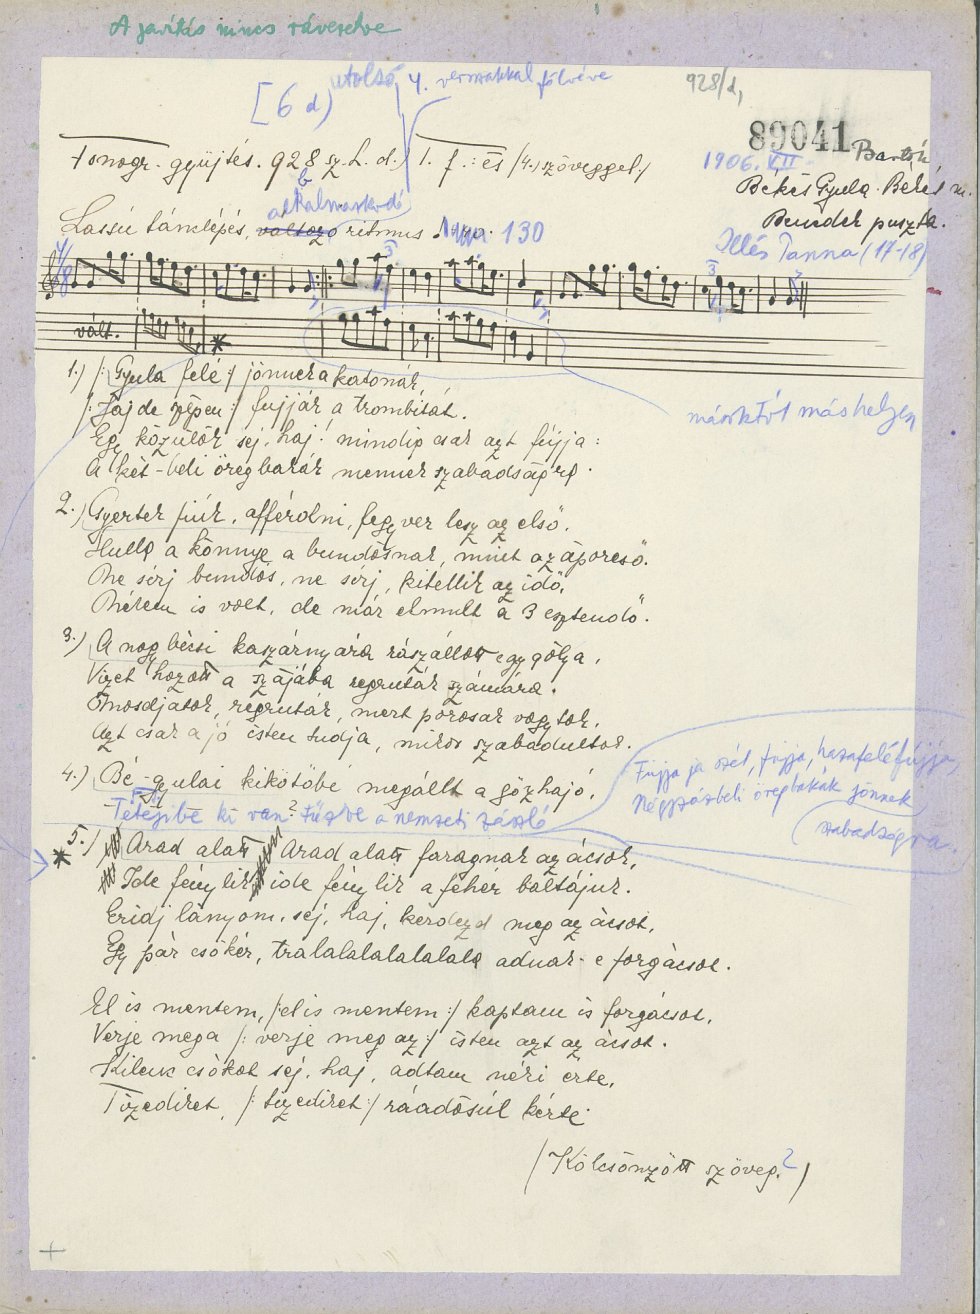 A javítás nincs rávezetve
utolsó 4. versszakkal fölvéve
[6 d)
928/d,
89041
Bartók
Fonogr. gyüjtés. 928 sz. L. d.) I. f. : és /4./ szöveggel./
1906. VII
Békés Gyula. Békés m.
Benedek puszta.
alkalmazkodó
Lassú támlépés, változó ritmus 130
Illés Panna (17-18)
4/8
3
3
vált.
*
1.) /: Gyula felé :/ jönnek a katonák,
/: Jaj de szépen :/ fujják a trombitát.
máskor más helyen
Egy közülök sej, haj! mindig csak azt fújja:
A két-beli öregbakák mennek szabadságra.
2.) Gyertek fiúk, afférolni, fegyver lesz az első.
Hull a könnye a bundásnak, mint az áporeső.
Ne sírj bundás, ne sírj, kitellik az idő,
Nékem is volt, de már elmult a 3 esztendő.
3.) A nagybécsi kaszárnyára rászállott egy gólya,
Vizet hozott a szájába regruták számára.
Mosdjatok, regruták, mert porosak vagytok,
Azt csak a jó isten tudja, mikor szabadultok.
4.) Bé-gyulai kikötőbe megállt a gőzhajó,
Fújja ja szél, fújja, hazafelé fújja,
Négyszázbeli öregbakák jönnek
szabadságra.
Tetejibe ki van? tűzve a nemzeti zászló
* 5.) Arad alatt Arad alatt faragnak az ácsok,
Ide fénylik, ide fénylik a fehér bőltájuk.
Eridj lányom, sej, haj, kérdezd meg az ácsot,
Egy pár csókér, tralalalalalala adnak-e forgácsot.
El is mentem, /: el is mentem :/ kaptam is forgácsot,
Verje mega /: verje meg az :/ isten azt az ácsot.
Kilenc csókot sej, haj, adtam néki érte,
Tizediket, /: tizediket :/ ráadásúl kérte.
/Kölcsönzött szöveg.?/